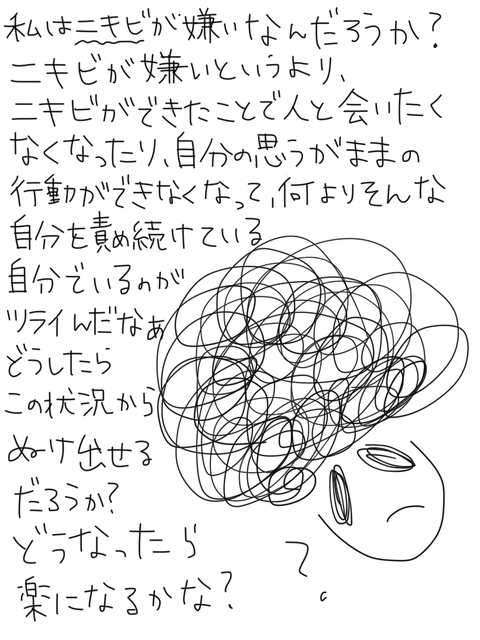 私はニキビが嫌いなんだろうか？
ニキビが嫌いというより、
ニキビができたことで人と会いたく
なくなったり、自分の思うがままの
行動ができなくなって、何よりそんな
自分を責め続けている
自分でいるのが
ツライんだなぁ
どうしたら
この状況から
ぬけ出せる
だろうか？
どうなったら
楽になるかな？
？